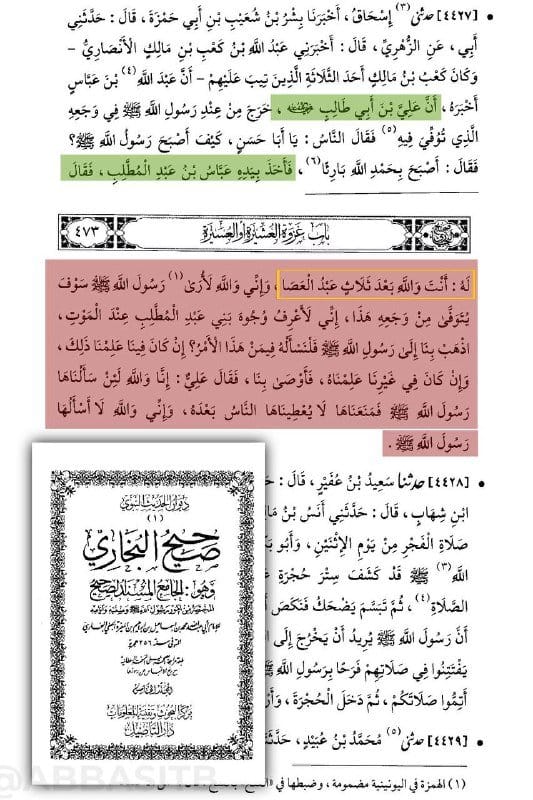 • [٤٤٢٧] حدثني (٣) إِسْحَاقُ، أَخْبَرَنَا بِشْرُ بْنُ شُعَيْبِ بْنِ أَبِي حَمْزَةَ، قَالَ: حَدَّثَنِي
أَبِي، عَنِ الزُّهْرِيِّ، قَالَ: أَخْبَرَنِي عَبْدُ اللَّهِ بْنُ كَعْبِ بْنِ مَالِكٍ الْأَنْصَارِيُّ -
وَكَانَ كَعْبُ بْنُ مَالِكٍ أَحَدَ الثَّلَاثَةِ الَّذِينَ تِيبَ عَلَيْهِمْ - أَنَّ عَبْدَ اللَّهِ (٤) بْنَ عَبَّاسٍ
أَخْبَرَهُ، أَنَّ عَلِيَّ بْنَ أَبِي طَالِبٍ، خَرَجَ مِنْ عِنْدِ رَسُولِ اللَّهِ ﷺ فِي وَجَعِهِ
الَّذِي تُوُفِّيَ فِيهِ (٥) فَقَالَ النَّاسُ: يَا أَبَا حَسَنٍ، كَيْفَ أَصْبَحَ رَسُولُ اللَّهِ ﷺ؟
فَقَالَ: أَصْبَحَ بِحَمْدِ اللَّهِ بَارِئًا (٦)، فَأَخَذَ بِيَدِهِ عَبَّاسُ بْنُ عَبْدِ الْمُطَّلِبِ، فَقَالَ
بَابُ غَزْوَةِ الْعُشَيْرَةِ أَوِ الْعُسَيْرَةِ ٤٧٣
لَهُ: أَنْتَ وَاللَّهِ بَعْدَ ثَلَاثٍ عَبْدُ الْعَصَا، وَإِنِّي وَاللَّهِ لَأُرَى (١) رَسُولَ اللَّهِ ﷺ سَوْفَ
يُتَوَفَّى مِنْ وَجَعِهِ هَذَا، إِنِّي لَأَعْرِفُ وُجُوهَ بَنِي عَبْدِ الْمُطَّلِبِ عِنْدَ الْمَوْتِ،
اذْهَبْ بِنَا إِلَى رَسُولِ اللَّهِ ﷺ فَلْنَسْأَلْهُ فِيمَنْ هَذَا الْأَمْرُ؟ إِنْ كَانَ فِينَا عَلِمْنَا ذَلِكَ،
وَإِنْ كَانَ فِي غَيْرِنَا عَلِمْنَاهُ، فَأَوْصَى بِنَا، فَقَالَ عَلِيٌّ: إِنَّا وَاللَّهِ لَئِنْ سَأَلْنَاهَا
رَسُولَ اللَّهِ ﷺ فَمَنَعَنَاهَا لَا يُعْطِينَاهَا النَّاسُ بَعْدَهُ، وَإِنِّي وَاللَّهِ لَا أَسْأَلُهَا
رَسُولَ اللَّهِ ﷺ.
• [٤٤٢٨] حدثنا سَعِيدُ بْنُ عُفَيْرٍ، قَالَ:
ابْنِ شِهَابٍ، قَالَ: حَدَّثَنِي أَنَسُ بْنُ
صَلَاةِ الْفَجْرِ مِنْ يَوْمِ الِاثْنَيْنِ، وَأَبُو
اللَّهِ (٣) ﷺ قَدْ كَشَفَ سِتْرَ حُجْرَةِ
الصَّلَاةِ (٤)، ثُمَّ تَبَسَّمَ يَضْحَكُ فَنَكَصَ
أَنَّ رَسُولَ اللَّهِ ﷺ يُرِيدُ أَنْ يَخْرُجَ إِلَى
يَفْتَتِنُوا فِي صَلَاتِهِمْ فَرَحًا بِرَسُولِ
أَتِمُّوا صَلَاتَكُمْ، ثُمَّ دَخَلَ الْحُجْرَةَ،
• [٤٤٢٩] حدثني (٥) مُحَمَّدُ بْنُ عُبَيْدٍ،
(١) الهمزة في اليونينية مضمومة، وضبطها في
ديوان الحديث النبوي
(١)
صحيح البخاري
وهو: الجامع المسند الصحيح
مركز البحوث وتقنية المعلومات
دار التأصيل
@ABBASITB